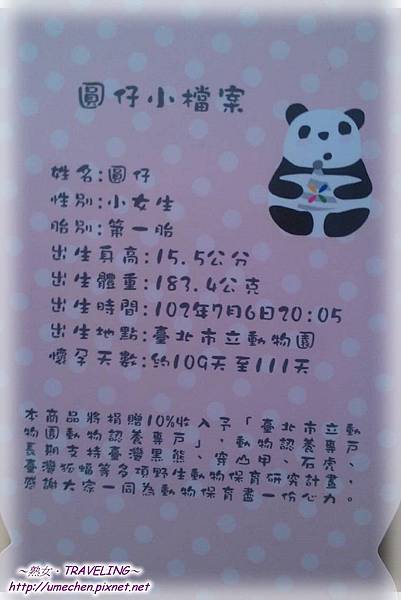 圓仔小檔案
姓名:圓仔
性別:小女生
胎別:第一胎
出生身高:15.5公分
出生體重:183.4公克
出生時間:102年7月6日20:05
出生地點:臺北市立動物園
懷孕天數:約109天至111天
本商品將捐贈10%收入予「臺北市立動
物園動物認養專戶」，動物認養專戶
長期支持臺灣黑熊、穿山甲、石虎、
臺灣狐蝠等多項野生動物保育研究計畫，
感謝大家一同為動物保育盡一份心力。
～熟女・TRAVELING～
http://umechen.pixnet.net